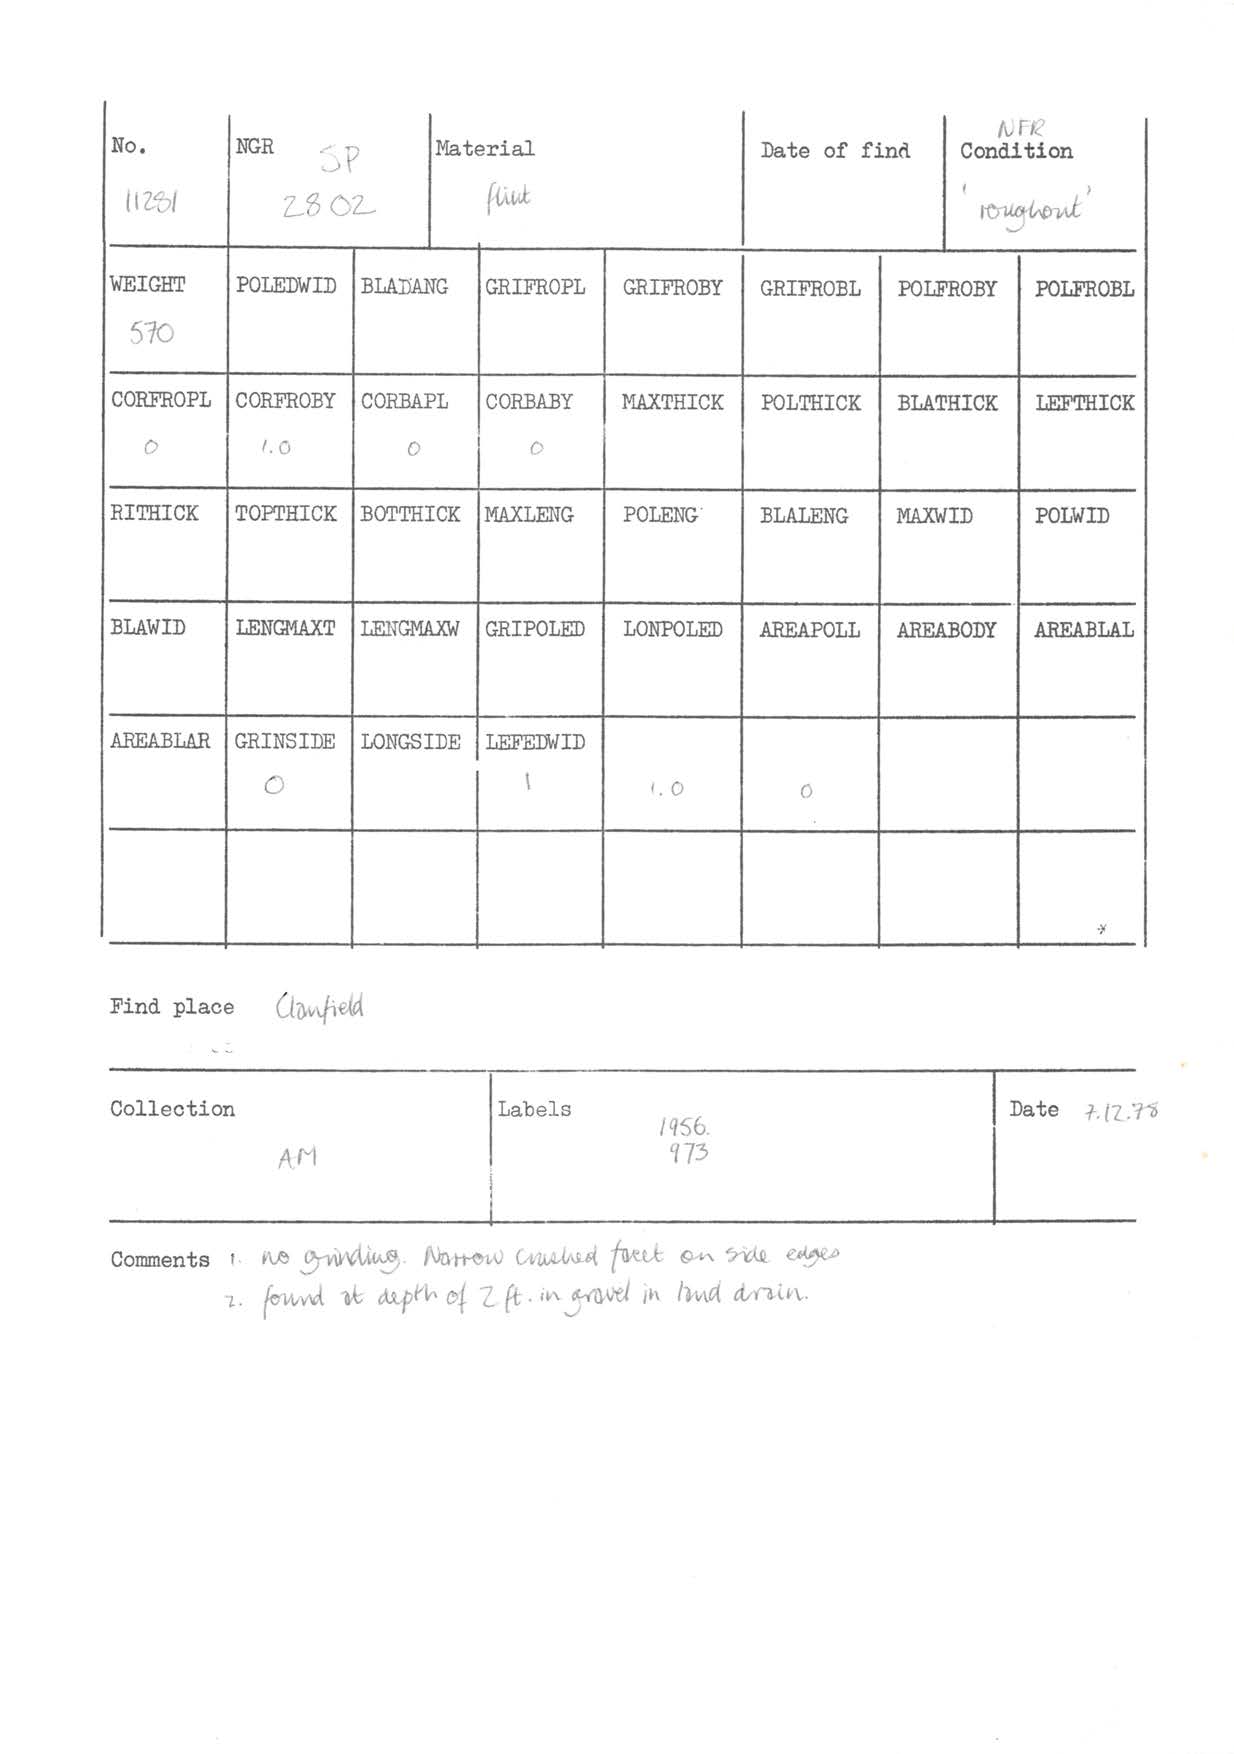 No. NGR SP Material Date of find NFR Condition
11281 2802 flint 'roughout'
WEIGHT POLEDWID BLADANG GRIFROPL GRIFROBY GRIFROBL POLFROBY POLFROBL
570
CORFROPL CORFROBY CORBAPL CORBABY MAXTHICK POLTHICK BLATHICK LEFTHICK
0 1.0 0 0
RITHICK TOPTHICK BOTTHICK MAXLENG POLENG BLALENG MAXWID POLWID
BLAWID LENGMAXT LENGMAXW GRIPOLED LONPOLED AREAPOLL AREABODY AREABLAL
AREABLAR GRINSIDE LONGSIDE LEFEDWID
0 1 1.0 0
*
Find place Clanfield
Collection Labels Date 7.12.78
1956.
AM 973
Comments 1. no grinding. Narrow crushed facet on side edges
2. found at depth of 2 ft. in gravel in land drain.